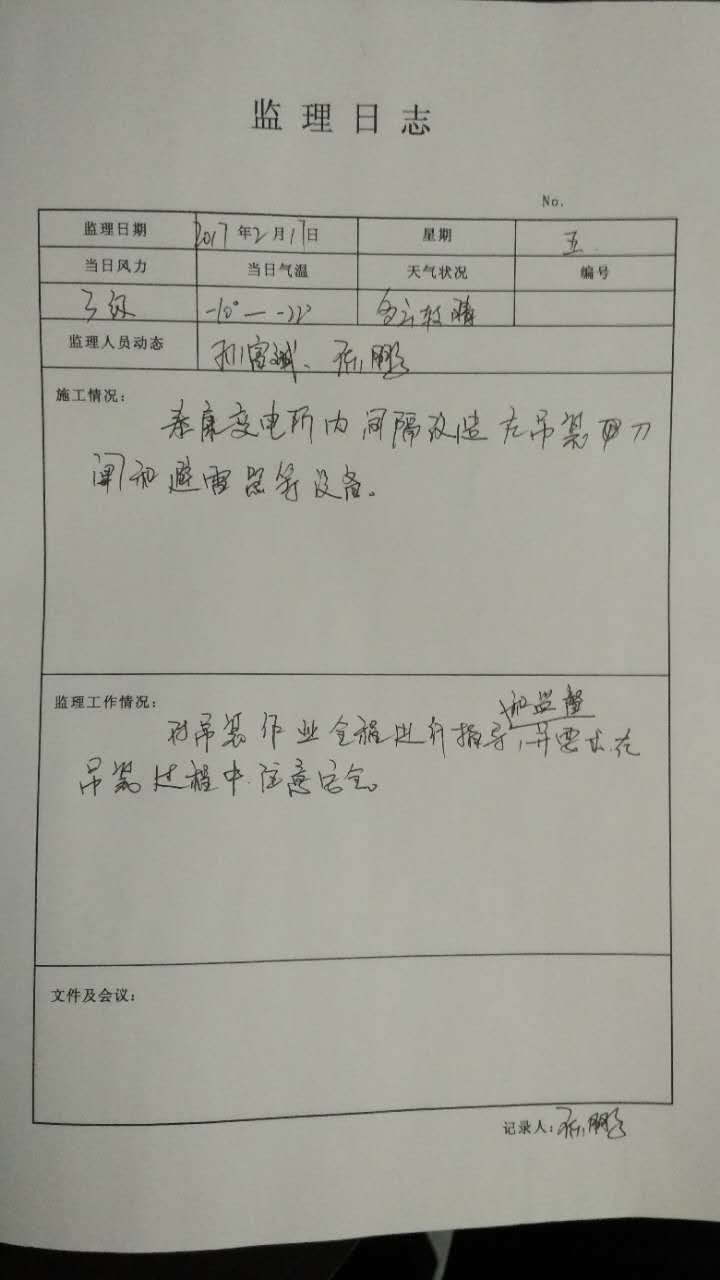 监理日志
No.
监理日期 2017年2月17日 星期 五
当日风力 当日气温 天气状况 编号
三级 -10°— -22°
监理人员动态
施工情况：
泰康变电所内间隔改造在吊装刀
闸和避雷器等设备。
监理工作情况：
和监督
对吊装作业全程进行指导，并要求在
吊装过程中注意安全。
文件及会议：
记录人：